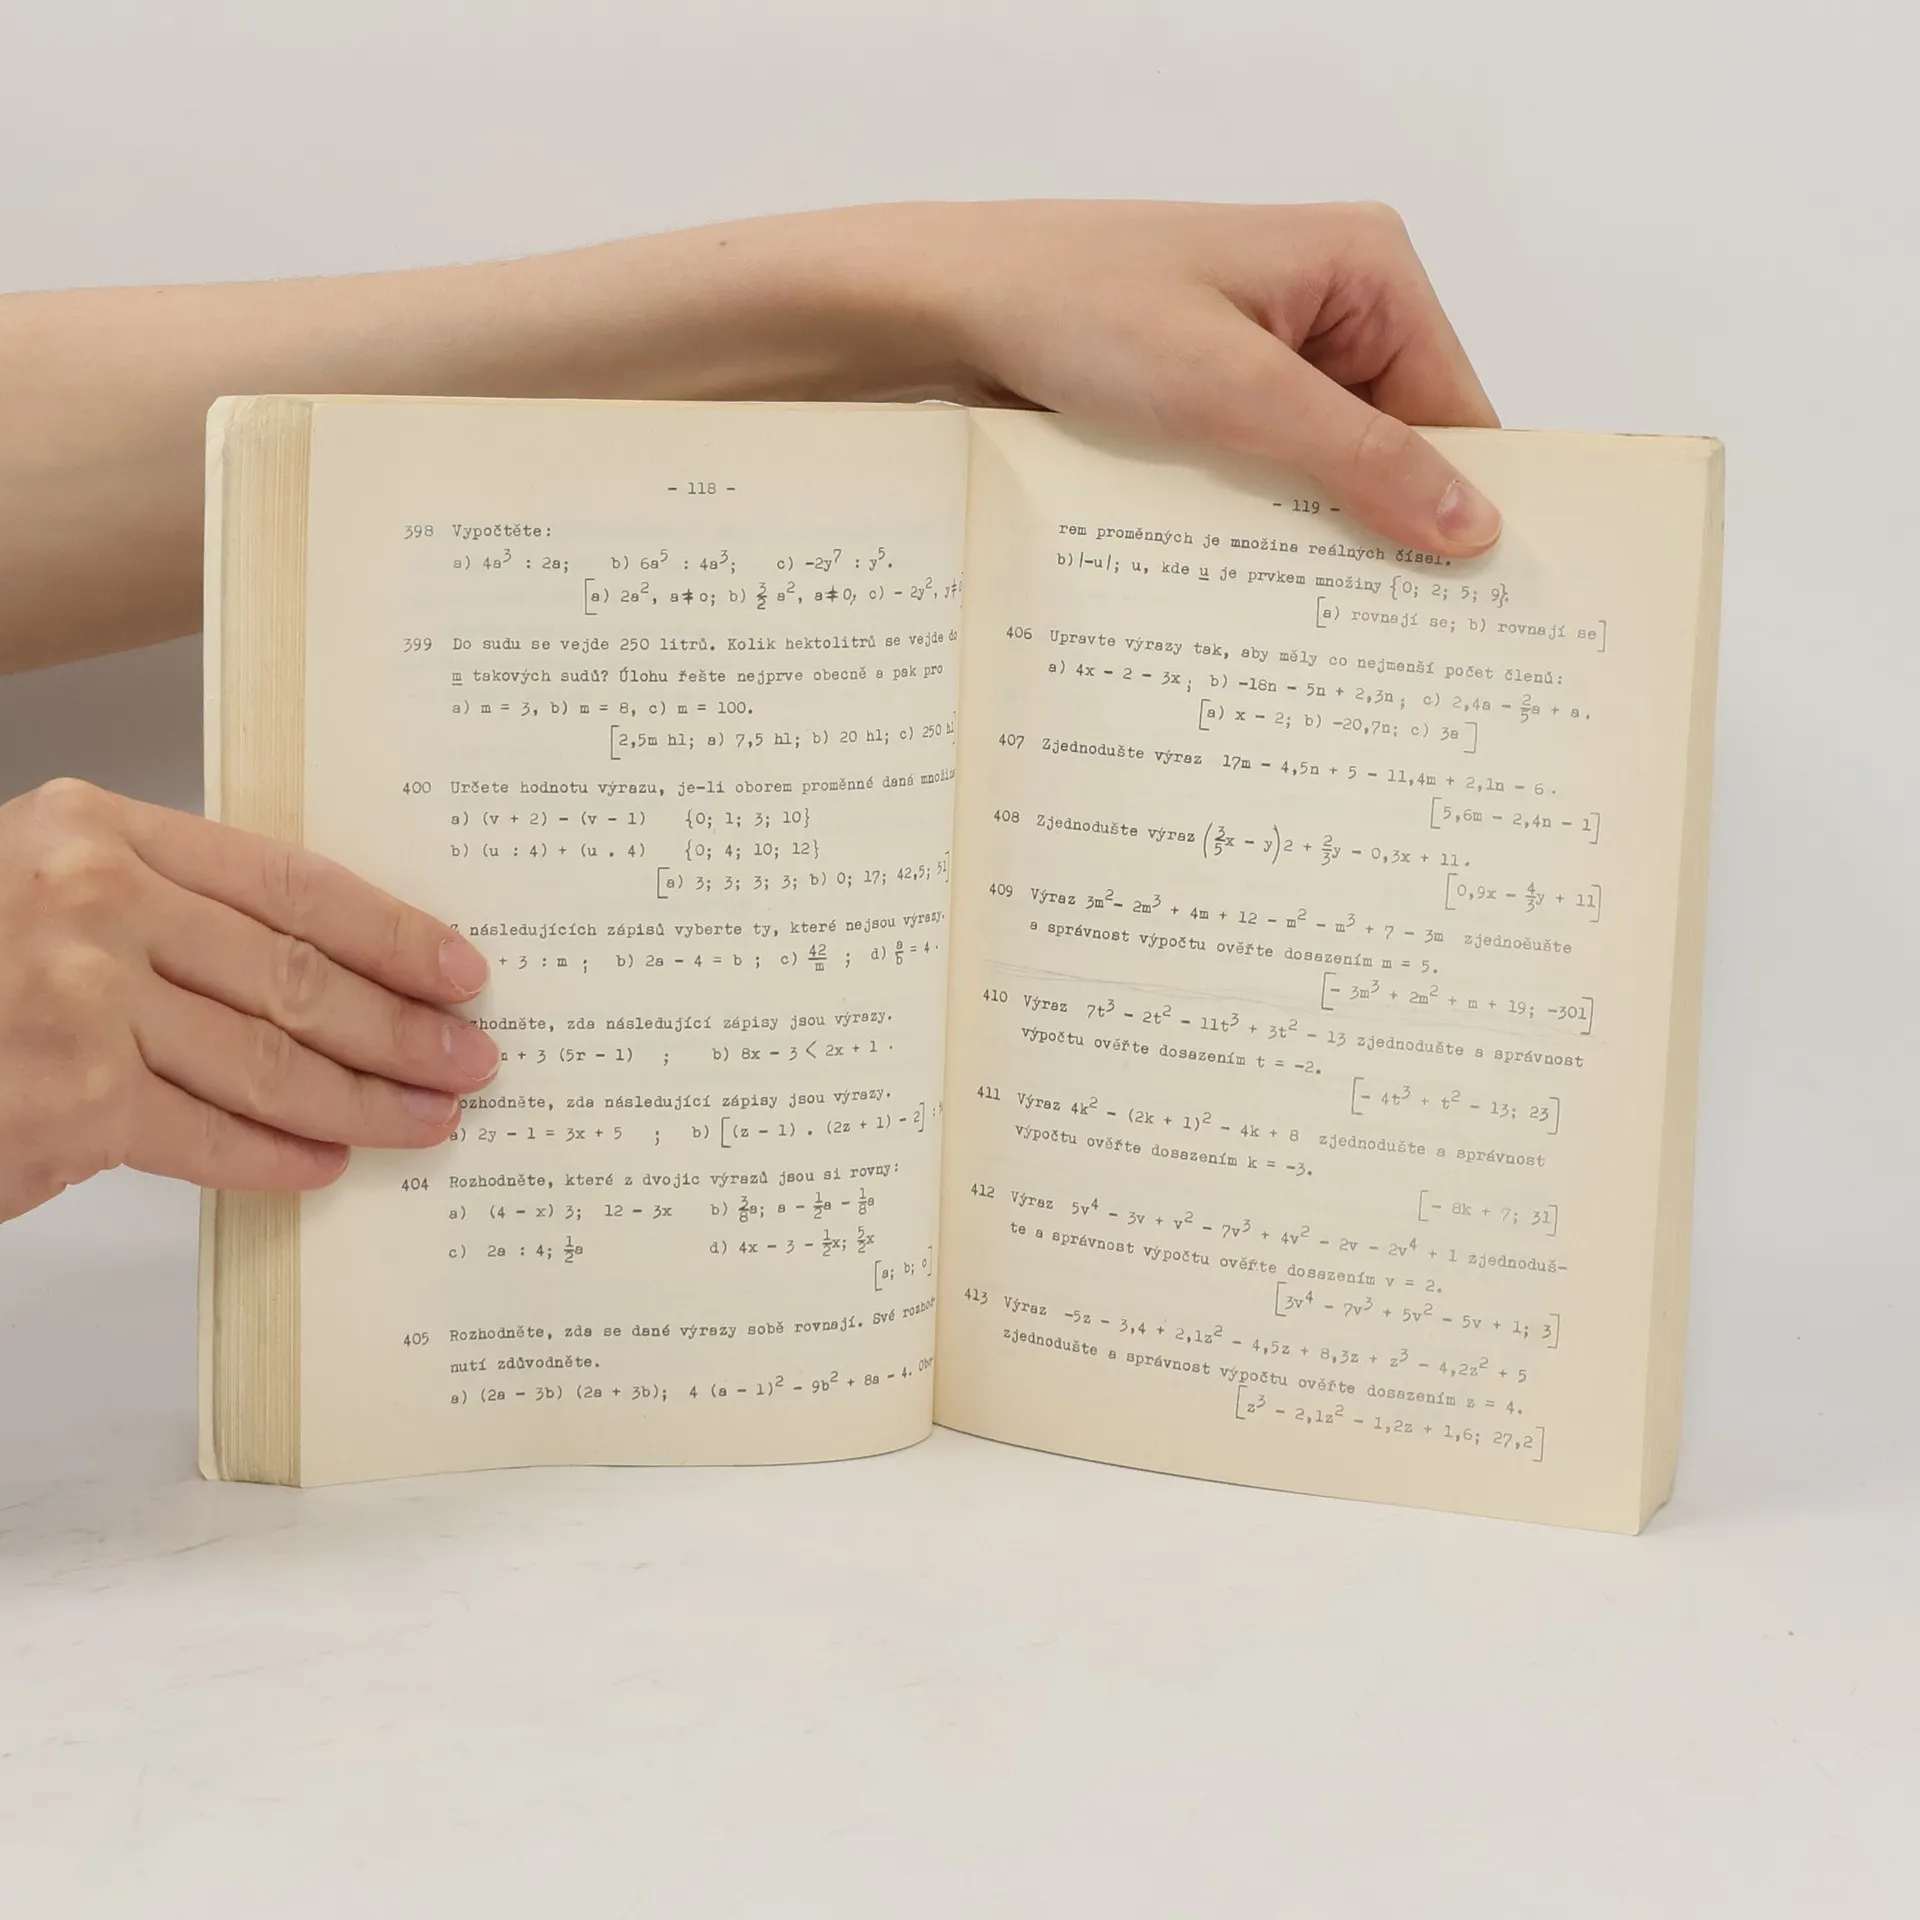 - 118 -
398 Vypočtěte:
a) 4a³ : 2a; b) 6a⁵ : 4a³; c) -2y⁷ : y⁵.
[a) 2a², a≠o; b) 3/2 a², a≠0, c) - 2y², y≠
399 Do sudu se vejde 250 litrů. Kolik hektolitrů se vejde do
m takových sudů? Úlohu řešte nejprve obecně a pak pro
a) m = 3, b) m = 8, c) m = 100.
[2,5m hl; a) 7,5 hl; b) 20 hl; c) 250 hl]
400 Určete hodnotu výrazu, je-li oborem proměnné daná množin
a) (v + 2) - (v - 1) {0; 1; 3; 10}
b) (u : 4) + (u . 4) {0; 4; 10; 12}
[a) 3; 3; 3; 3; b) 0; 17; 42,5; 51]
Z následujících zápisů vyberte ty, které nejsou výrazy.
+ 3 : m ; b) 2a - 4 = b ; c) 42/m ; d) a/b = 4 .
zhodněte, zda následující zápisy jsou výrazy.
+ 3 (5r - 1) ; b) 8x - 3 < 2x + 1 .
ozhodněte, zda následující zápisy jsou výrazy.
a) 2y - 1 = 3x + 5 ; b) [(z - 1) . (2z + 1) - 2] :
404 Rozhodněte, které z dvojic výrazů jsou si rovny:
a) (4 - x) 3; 12 - 3x b) 3/8a; a - 1/2a - 1/8a
c) 2a : 4; 1/2a d) 4x - 3 - 1/2x; 5/2x
[a; b; c]
405 Rozhodněte, zda se dané výrazy sobě rovnají. Své rozhod-
nutí zdůvodněte.
a) (2a - 3b) (2a + 3b); 4 (a - 1)² - 9b² + 8a - 4. Obo-
- 119 -
rem proměnných je množina reálných čísel.
b) |-u|; u, kde u je prvkem množiny {0; 2; 5; 9}.
[a) rovnají se; b) rovnají se]
406 Upravte výrazy tak, aby měly co nejmenší počet členů:
a) 4x - 2 - 3x ; b) -18n - 5n + 2,3n ; c) 2,4a - 2/5a + a .
[a) x - 2; b) -20,7n; c) 3a ]
407 Zjednodušte výraz 17m - 4,5n + 5 - 11,4m + 2,1n - 6 .
[5,6m - 2,4n - 1]
408 Zjednodušte výraz (3/5x - y)2 + 2/3y - 0,3x + 11 .
[0,9x - 4/3y + 11]
409 Výraz 3m²- 2m³ + 4m + 12 - m² - m³ + 7 - 3m zjednošušte
a správnost výpočtu ověřte dosazením m = 5.
[- 3m³ + 2m² + m + 19; -301]
410 Výraz 7t³ - 2t² - 11t³ + 3t² - 13 zjednodušte a správnost
výpočtu ověřte dosazením t = -2.
[- 4t³ + t² - 13; 23]
411 Výraz 4k² - (2k + 1)² - 4k + 8 zjednodušte a správnost
výpočtu ověřte dosazením k = -3.
[- 8k + 7; 31]
412 Výraz 5v⁴ - 3v + v² - 7v³ + 4v² - 2v - 2v⁴ + 1 zjednoduš-
te a správnost výpočtu ověřte dosazením v = 2.
[3v⁴ - 7v³ + 5v² - 5v + 1; 3]
413 Výraz -5z - 3,4 + 2,1z² - 4,5z + 8,3z + z³ - 4,2z² + 5
zjednodušte a správnost výpočtu ověřte dosazením z = 4.
[z³ - 2,1z² - 1,2z + 1,6; 27,2]